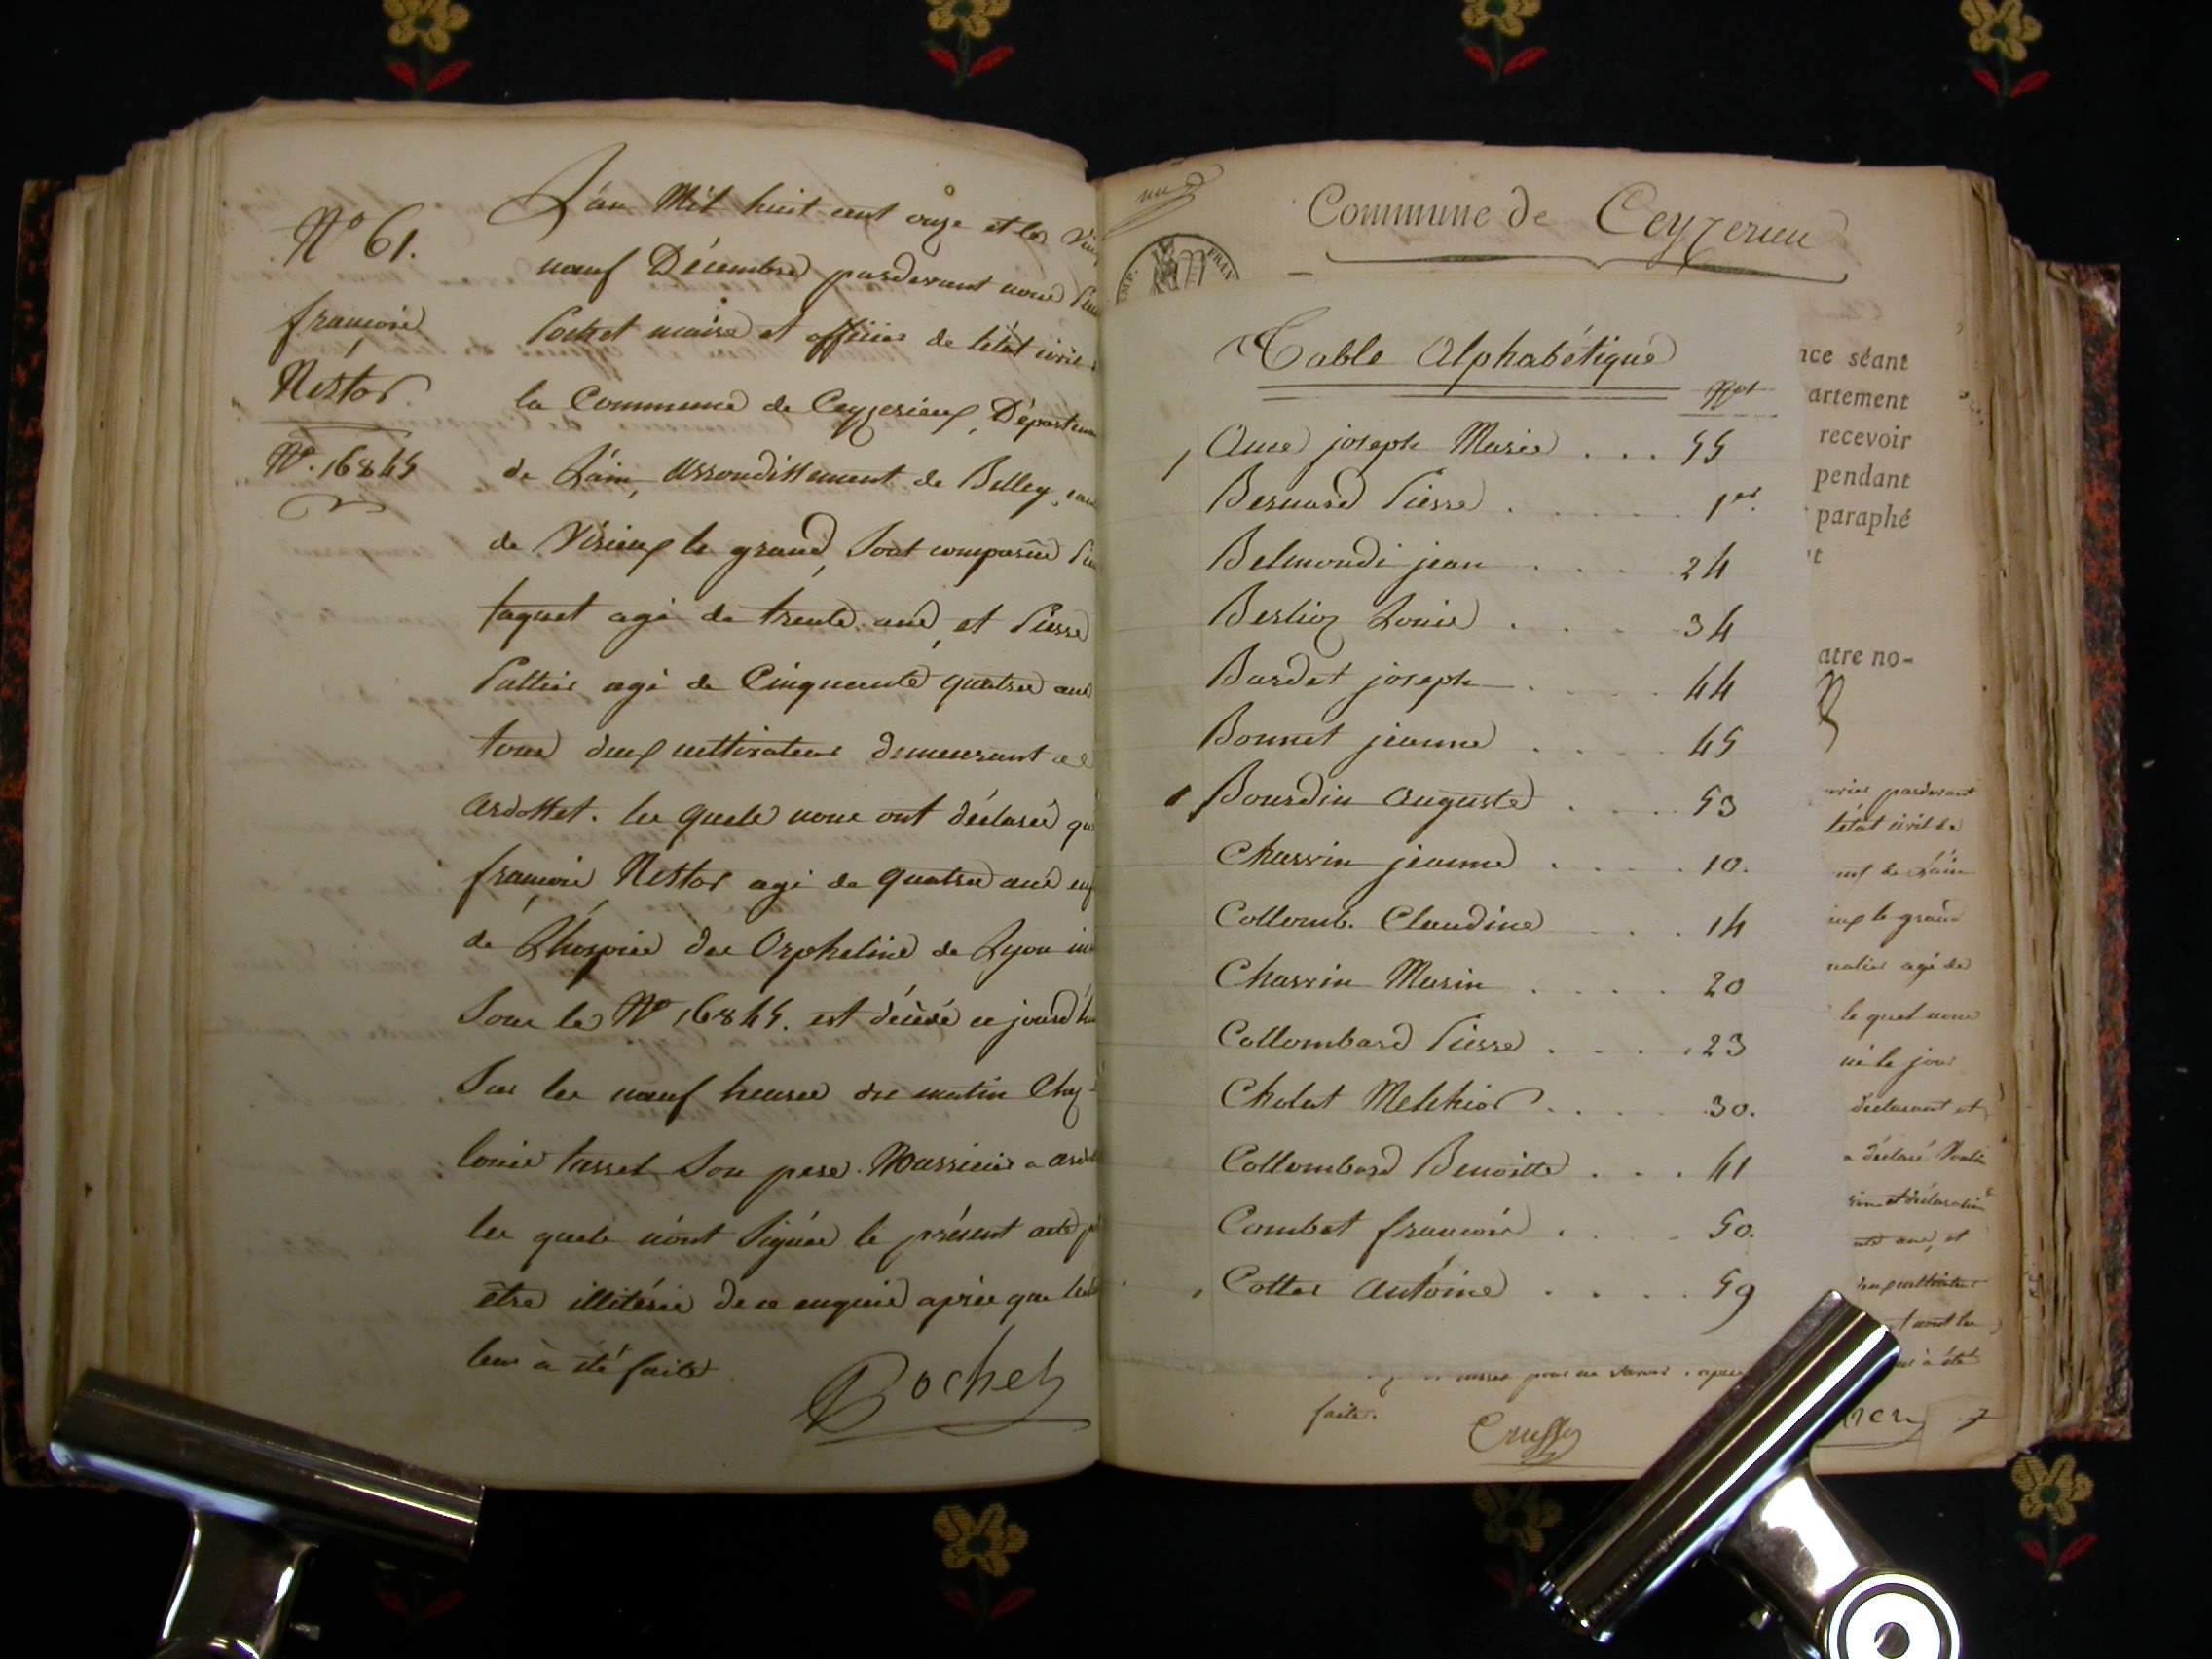 N° 61.
françois
Nestor
N°. 16845
L'an Mil huit cent onze et le
nœuf Décembre pardevant nous
Pochet maire et officier de l'état civil
la Commune de Ceyzerieux, Départem
de L'ain, Arrondissement de Belley,
de Virieux le grand, Sont comparus
taquet agé de trente ans, et Pierre
Pattier agé de Cinquante quatre ans
tous deux cultivateurs demeurant
ardosset. les quels nous ont déclaré qu
françois Nestor agé de quatre ans
de L'hospice des Orphelins de Lyon
Sous le N° 16845. est décédé ce jourd'hu
Sur les nœuf heures du matin Chez
louis tasset Son pere Nourricier a
les quels n'ont Signés le présent acte
être illitérés de ce enquis après que
leur à été faite
Pochet
Commune de Ceyzerieu
IMP. FRAN
Table Alphabétique
Nos
Ame joseph Marie . . . 55
Bernard Pierre . . . 1er.
Belmondi jean . . . 24
Berlioz Louis . . . 34
Bardet joseph . . . 44
Bonnet jeanne . . . 45
Bourdin Auguste . . . 53
Charvin jeanne . . . 10.
Collomb. Claudine . . . 14
Charvin Marin . . . 20
Collombard Pierre . . . 23
Cholat Melchior . . . 30.
Collombard Benoitte . . . 41
Combet françois . . . 50.
Cotter Antoine . . . 59
faite.
nce séant
artement
recevoir
pendant
paraphé
t
atre no-
pardevant
l'état civil de
de L'ain
le grand
agé de
le quel nous
né le jour
déclarant et
a déclaré Vouloir
et déclaration
ans, et
à été